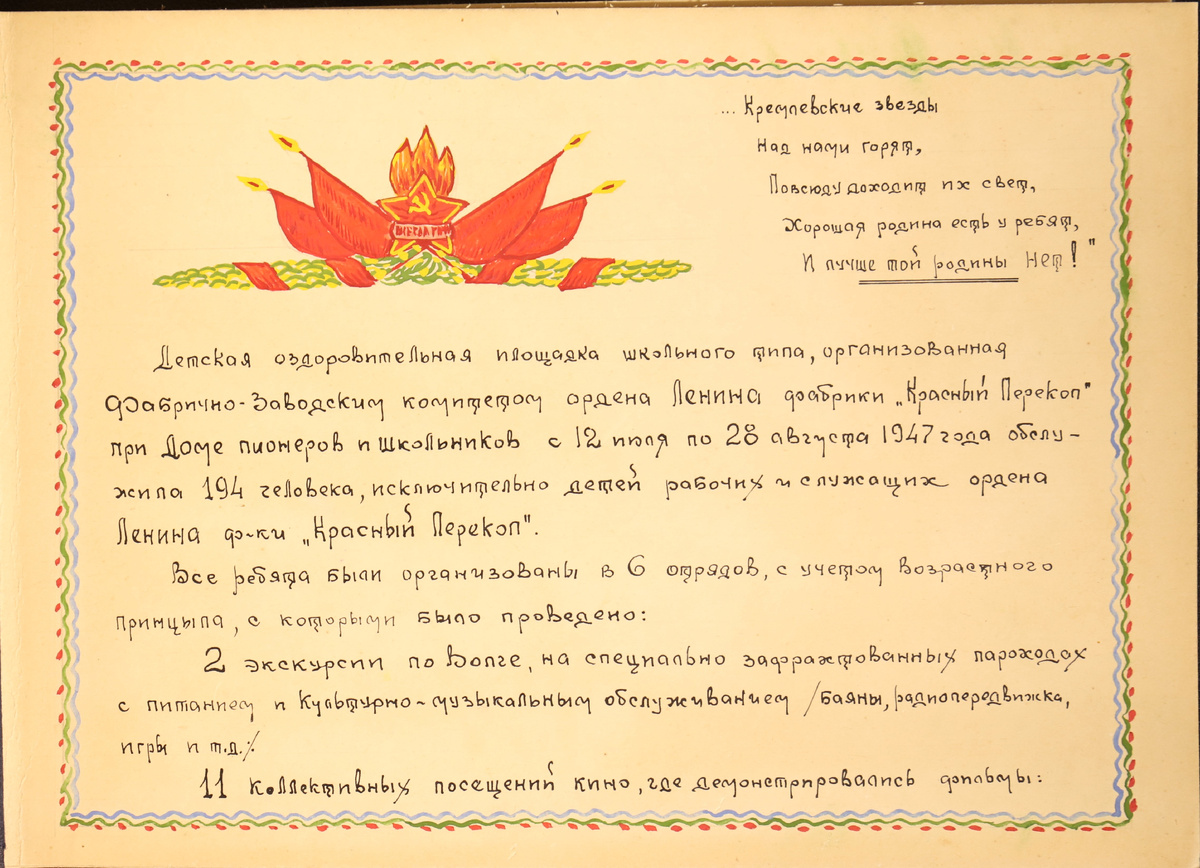 ... Кремлевские звезды
Над нами горят,
Повсюду доходит их свет,
Хорошая родина есть у ребят,
И лучше той родины Нет!"
Детская оздоровительная площадка школьного типа, организованная
Фабрично-Заводским комитетом ордена Ленина фабрики „Красный Перекоп"
при Доме пионеров и школьников с 12 июля по 28 августа 1947 года обслу-
жила 194 человека, исключительно детей рабочих и служащих ордена
Ленина ф-ки „Красный Перекоп".
Все ребята были организованы в 6 отрядов, с учетом возрастного
принцыпа, с которыми было проведено:
2 экскурсии по Волге, на специально зафрахтованных пароходах
с питанием и Культурно-музыкальным обслуживанием /баяны, радиопередвижка,
игры и т.д./.
11 коллективных посещений кино, где демонстрировались фильмы: